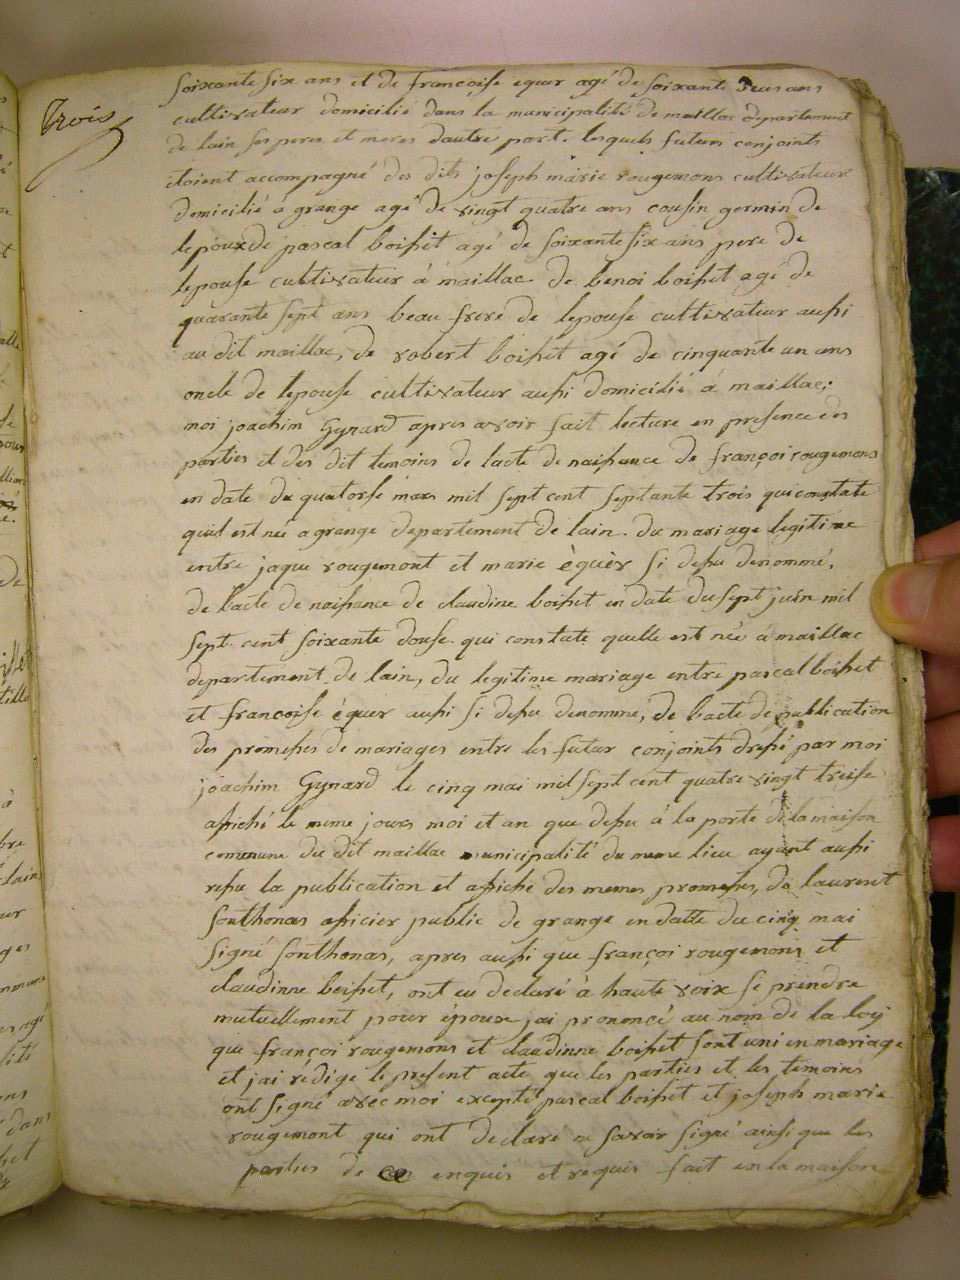 Trois
soixante six ans et de françoise equer agé de soixante deus ans
cultivateur domicilié dans la municipalité de maillac departement
de lain ses peres et meres dautre part. lesquels futurs conjoints
étoient accompagné des dits joseph marie rougemons cultivateur
domicilié a grange agé de vingt quatre ans cousin germin de
lepoux de pascal boisset agé de soixante six ans pere de
lepouse cultivateur á maillac de benoi boisset agé de
quarante sept ans beau frere de lepouse cultivateur aussi
au dit maillac, de robert boisset agé de cinquante un ans
oncle de lepouse cultivateur aussi domicilié á maillac;
moi joachim Gynard apres avoir fait lecture en presence des
parties et des dit temoins de lacte de naissance de françoi rougemons
en date du quatorse mars mil sept cent septante trois qui constate
quil est née a grange departement de lain. du mariage legitime
entre jaque rougemont et marie èquèr si dessu denommé,
de lacte de naissance de claudine boisset en date du sept juin mil
sept cent soixante douse qui constate quelle est née á maillac
departement de lain, du legitime mariage entre pascal boisset
et francoise équer aussi si dessu denomme, de lacte de publication
des promesses de mariages entre les futur conjoints dressé par moi
joachim Gynard le cinq mai mil sept cent quatre vingt treise
affiché le meme jours moi et an que dessu á la porte de la maison
commune du dit maillac municipalité du meme lieu ayant aussi
resu la publication et affiche des memes promesses, de laurent
Sonthonas officier public de grange en datte du cinq mai
signé Sonthonas, apres aussi que françoi rougemons et
claudinne boisset, ont eu declaré á haute voix se prendre
mutuellement pour époux jai prononcé au nom de la loy
que françoi rougemons et claudinne boisset sont uni en mariage
et jai rédige le present acte que les parties et les temoins
ont signé avec moi excepté pascal boisset et joseph marie
rougemont qui ont declaré ne savoir signé ainsi que les
parties de ce enquis et requis fait en la maison